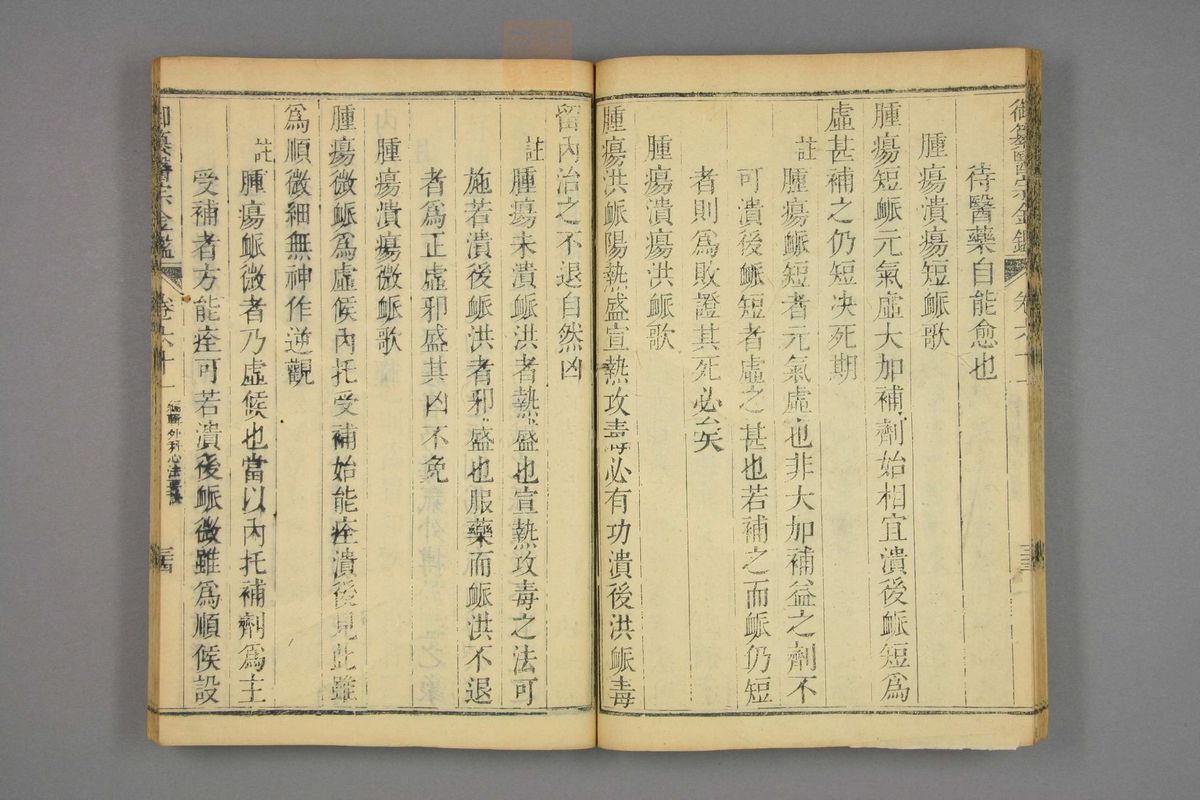 御纂醫宗金鑑 卷六十一 三三
待醫藥自能愈也
腫瘍潰瘍短脈歌
腫瘍短脈元氣虛大加補劑始相宜潰後脈短爲
虛甚補之仍短決死期
註腫瘍脈短者元氣虛也非大加補益之劑不
可潰後脈短者虛之甚也若補之而脈仍短
者則爲敗證其死必矣
腫瘍潰瘍洪脈歌
腫瘍洪脈陽熱盛宣熱攻毒必有功潰後洪脈毒
留內治之不退自然凶
註腫瘍未潰脈洪者熱盛也宣熱攻毒之法可
施若潰後脈洪者邪盛也服藥而脈洪不退
者爲正虛邪盛其凶不免
腫瘍潰瘍微脈歌
腫瘍微脈爲虛候內托受補始能痊潰後見此雖
爲順微細無神作逆觀
註腫瘍脈微者乃虛候也當以內托補劑爲主
受補者方能痊可若潰後脈微雖爲順候設
御纂醫宗金鑑 卷六十一 編輯外科心法要訣 三四